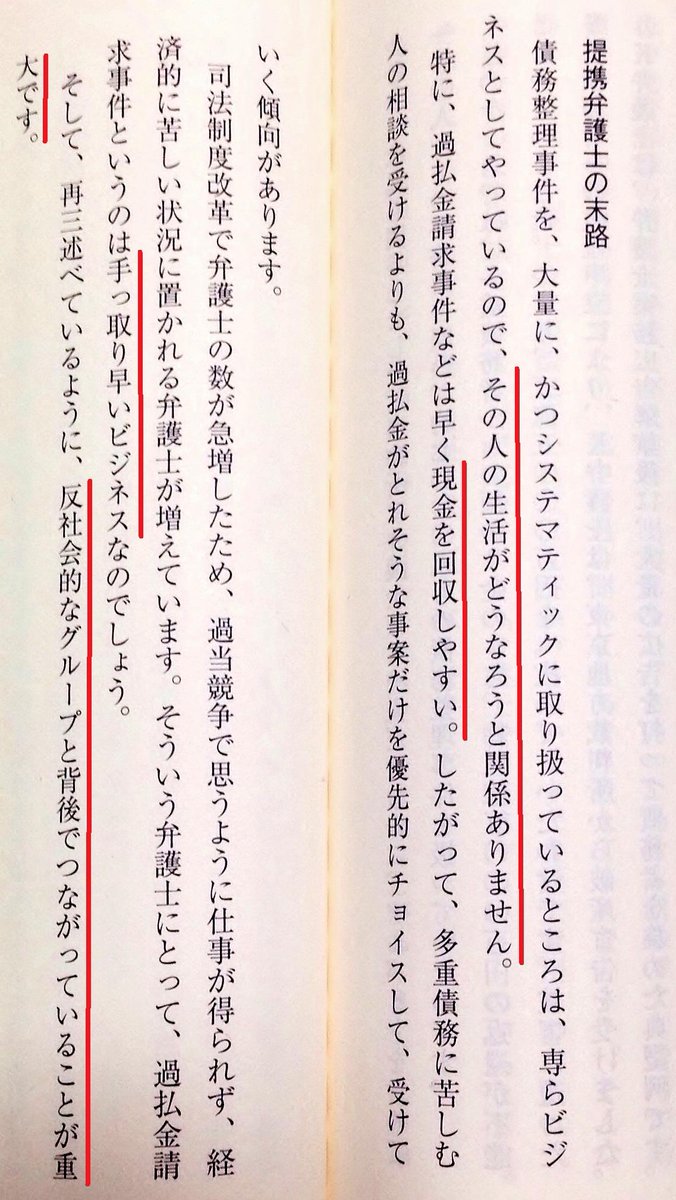 提携弁護士の末路
債務整理事件を、大量に、かつシステマティックに取り扱っているところは、専らビジ
ネスとしてやっているので、その人の生活がどうなろうと関係ありません。
特に、過払金請求事件などは早く現金を回収しやすい。したがって、多重債務に苦しむ
人の相談を受けるよりも、過払金がとれそうな事案だけを優先的にチョイスして、受けて
いく傾向があります。
司法制度改革で弁護士の数が急増したため、過当競争で思うように仕事が得られず、経
済的に苦しい状況に置かれる弁護士が増えています。そういう弁護士にとって、過払金請
求事件というのは手っ取り早いビジネスなのでしょう。
そして、再三述べているように、反社会的なグループと背後でつながっていることが重
大です。